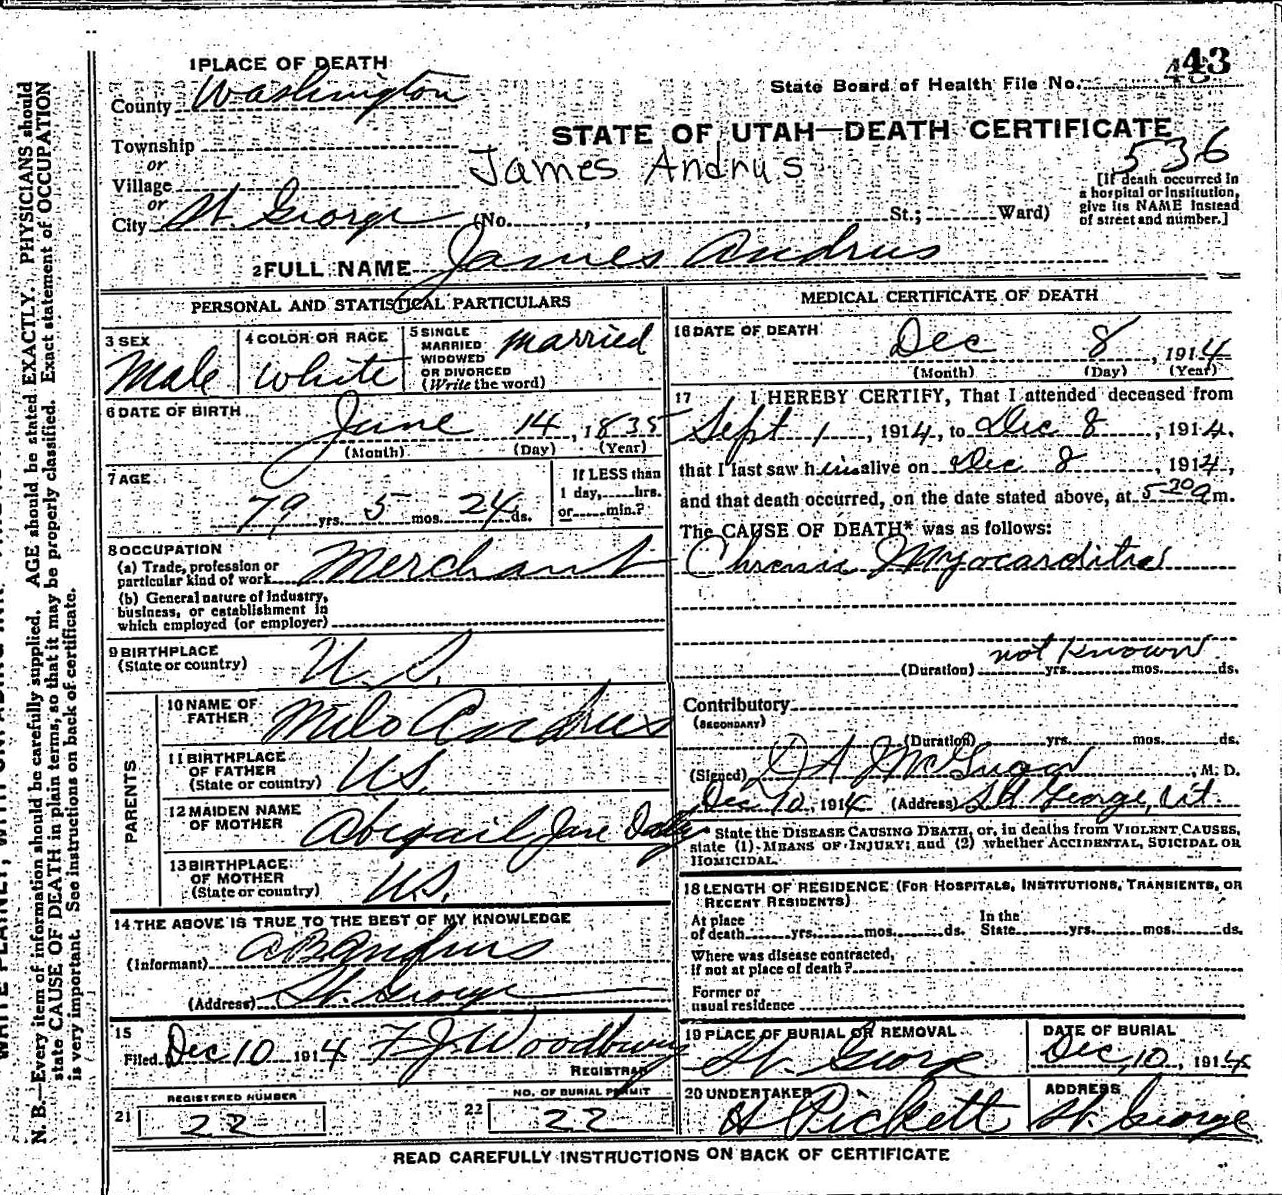 43
State Board of Health File No.
1 PLACE OF DEATH
County Washington
STATE OF UTAH—DEATH CERTIFICATE
536
Township
James Andrus
or
Village
or
City St. George (No. , St.; Ward)
[If death occurred in
a hospital or institution,
give its NAME instead
of street and number.]
2 FULL NAME James Andrus
PERSONAL AND STATISTICAL PARTICULARS
3 SEX
Male
4 COLOR OR RACE
White
5 SINGLE
MARRIED
WIDOWED
OR DIVORCED
(Write the word)
married
6 DATE OF BIRTH
June 14, 1835
(Month) (Day) (Year)
7 AGE
79 yrs. 5 mos. 24 ds.
If LESS than
1 day, hrs.
or min.?
8 OCCUPATION
(a) Trade, profession or
particular kind of work Merchant
(b) General nature of industry,
business, or establishment in
which employed (or employer)
9 BIRTHPLACE
(State or country) U. S.
PARENTS
10 NAME OF
FATHER Milo Andrus
11 BIRTHPLACE
OF FATHER
(State or country) U.S.
12 MAIDEN NAME
OF MOTHER Abigail Jane Daley
13 BIRTHPLACE
OF MOTHER
(State or country) U.S.
14 THE ABOVE IS TRUE TO THE BEST OF MY KNOWLEDGE
(Informant) Andrus
(Address) St. George
15
Filed Dec 10 1914 F J Woodbury
REGISTRAR
REGISTERED NUMBER
21 22
NO. OF BURIAL PERMIT
22 22
MEDICAL CERTIFICATE OF DEATH
16 DATE OF DEATH
Dec 8, 1914
(Month) (Day) (Year)
17 I HEREBY CERTIFY, That I attended deceased from
Sept 1, 1914, to Dec 8, 1914,
that I last saw him alive on Dec 8, 1914,
and that death occurred, on the date stated above, at 5 30 a m.
The CAUSE OF DEATH* was as follows:
Chronic Myocarditis
not known
(Duration) yrs. mos. ds.
Contributory
(SECONDARY)
(Duration) yrs. mos. ds.
(Signed) McGregor, M. D.
Dec 10, 1914 (Address) St George, Ut.
* State the DISEASE CAUSING DEATH, or, in deaths from VIOLENT CAUSES,
state (1) MEANS OF INJURY; and (2) whether ACCIDENTAL, SUICIDAL OR
HOMICIDAL.
18 LENGTH OF RESIDENCE (FOR HOSPITALS, INSTITUTIONS, TRANSIENTS, OR
RECENT RESIDENTS)
At place
of death yrs. mos. ds.
In the
State yrs. mos. ds.
Where was disease contracted,
if not at place of death?
Former or
usual residence
19 PLACE OF BURIAL OR REMOVAL
St. George
DATE OF BURIAL
Dec, 10, 1914
20 UNDERTAKER
Pickett
ADDRESS
St. George
READ CAREFULLY INSTRUCTIONS ON BACK OF CERTIFICATE
N. B.—Every item of information should be carefully supplied. AGE should be stated EXACTLY. PHYSICIANS should
state CAUSE OF DEATH in plain terms, so that it may be properly classified. Exact statement of OCCUPATION
is very important. See instructions on back of certificate.